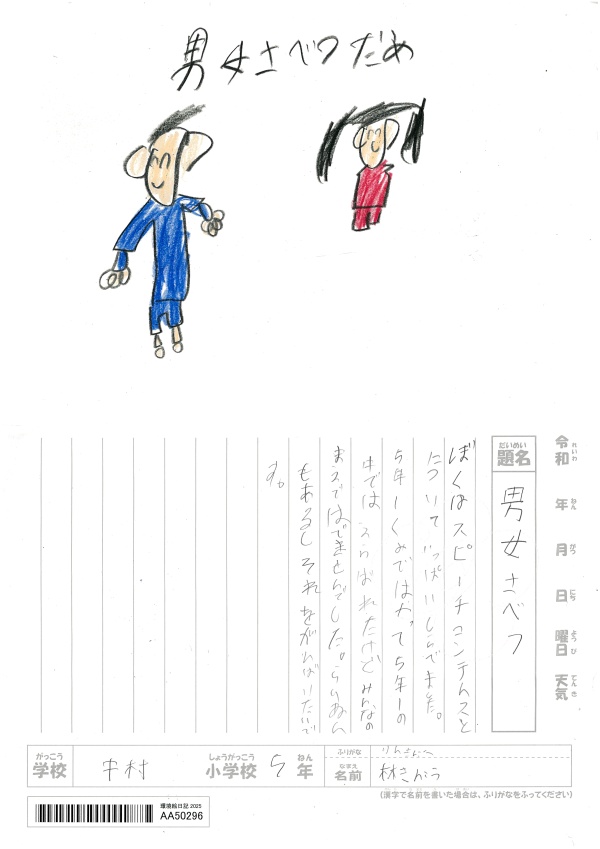 男女さべつだめ
令和 年 月 日 曜日 天気
れいわ ねん がつ にち ようび てんき
だいめい
題名
男女さべつ
ぼくはスピーチコンテんスと
について いっぱいしらべました。
5年1くみではかって5年1の
中では えらばれたけど みんなの
まえでは。できとんでした。らいねん
もあるし それをがんばりたいで
す。
がっこう
学校
中村
しょうがっこう
小学校
5
ねん
年
ふりがな
なまえ
名前
(漢字で名前を書いた場合は、ふりがなをふってください)
環境絵日記 2025
AA50296